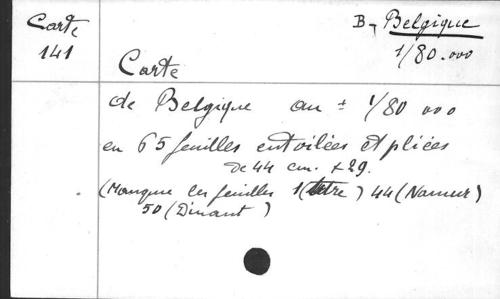 Carte
141
B - Belgique
1/80.000
Carte
de Belgique au ± 1/80 000
en 65 feuilles entoilées et pliées
de 44 cm. x 29.
(Manque les feuilles 1 (titre) 44 (Namur)
50 (Dinant)